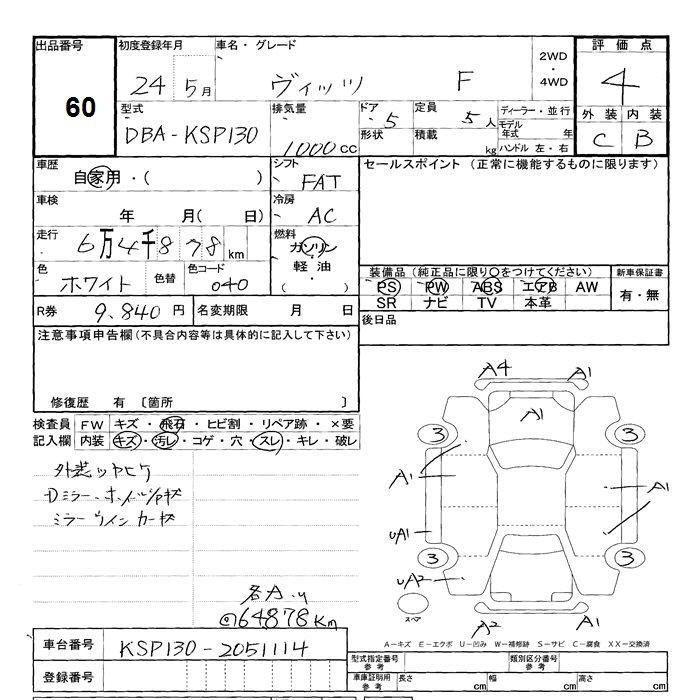 出品番号
60
初度登録年月
24 5月
車名・グレード
ヴィッツ F
2WD
・
4WD
評価点
4
外装 内装
C B
型式
DBA-KSP130
排気量
1000cc
ドア 5
形状
定員 5人
積載 kg
ディーラー・並行
モデル年式 年
ハンドル 左・右
車歴
自家用・( )
シフト
FAT
セールスポイント (正常に機能するものに限ります)
車検
年 月( 日)
冷房
AC
走行
6万4千878km
燃料
ガソリン
軽油
( )
色
ホワイト
色替
色コード
040
装備品 (純正品に限り○をつけてください)
PS PW ABS エアB AW
SR ナビ TV 本革
新車保証書
有・無
R券 9,840円
名変期限 月 日
後日品
注意事項申告欄(不具合内容等は具体的に記入して下さい)
修復歴 有 〔箇所 〕
検査員記入欄
FW キズ・飛石・ヒビ割・リペア跡・×要
内装 キズ・汚レ・コゲ・穴・スレ・キレ・破レ
外装ツヤヒケ
ミラーウインカーキズ
@64878km
A4 A1
A1
3 3
A1 A1
uA1
3 3
uA2
A2 A1
スペア
A-キズ E-エクボ U-凹み W-補修跡 S-サビ C-腐食 XX-交換済
車台番号 KSP130-2051114
登録番号
型式指定番号 参考
類別区分番号 参考
車庫証明用 参考
長さ cm 幅 cm 高さ cm